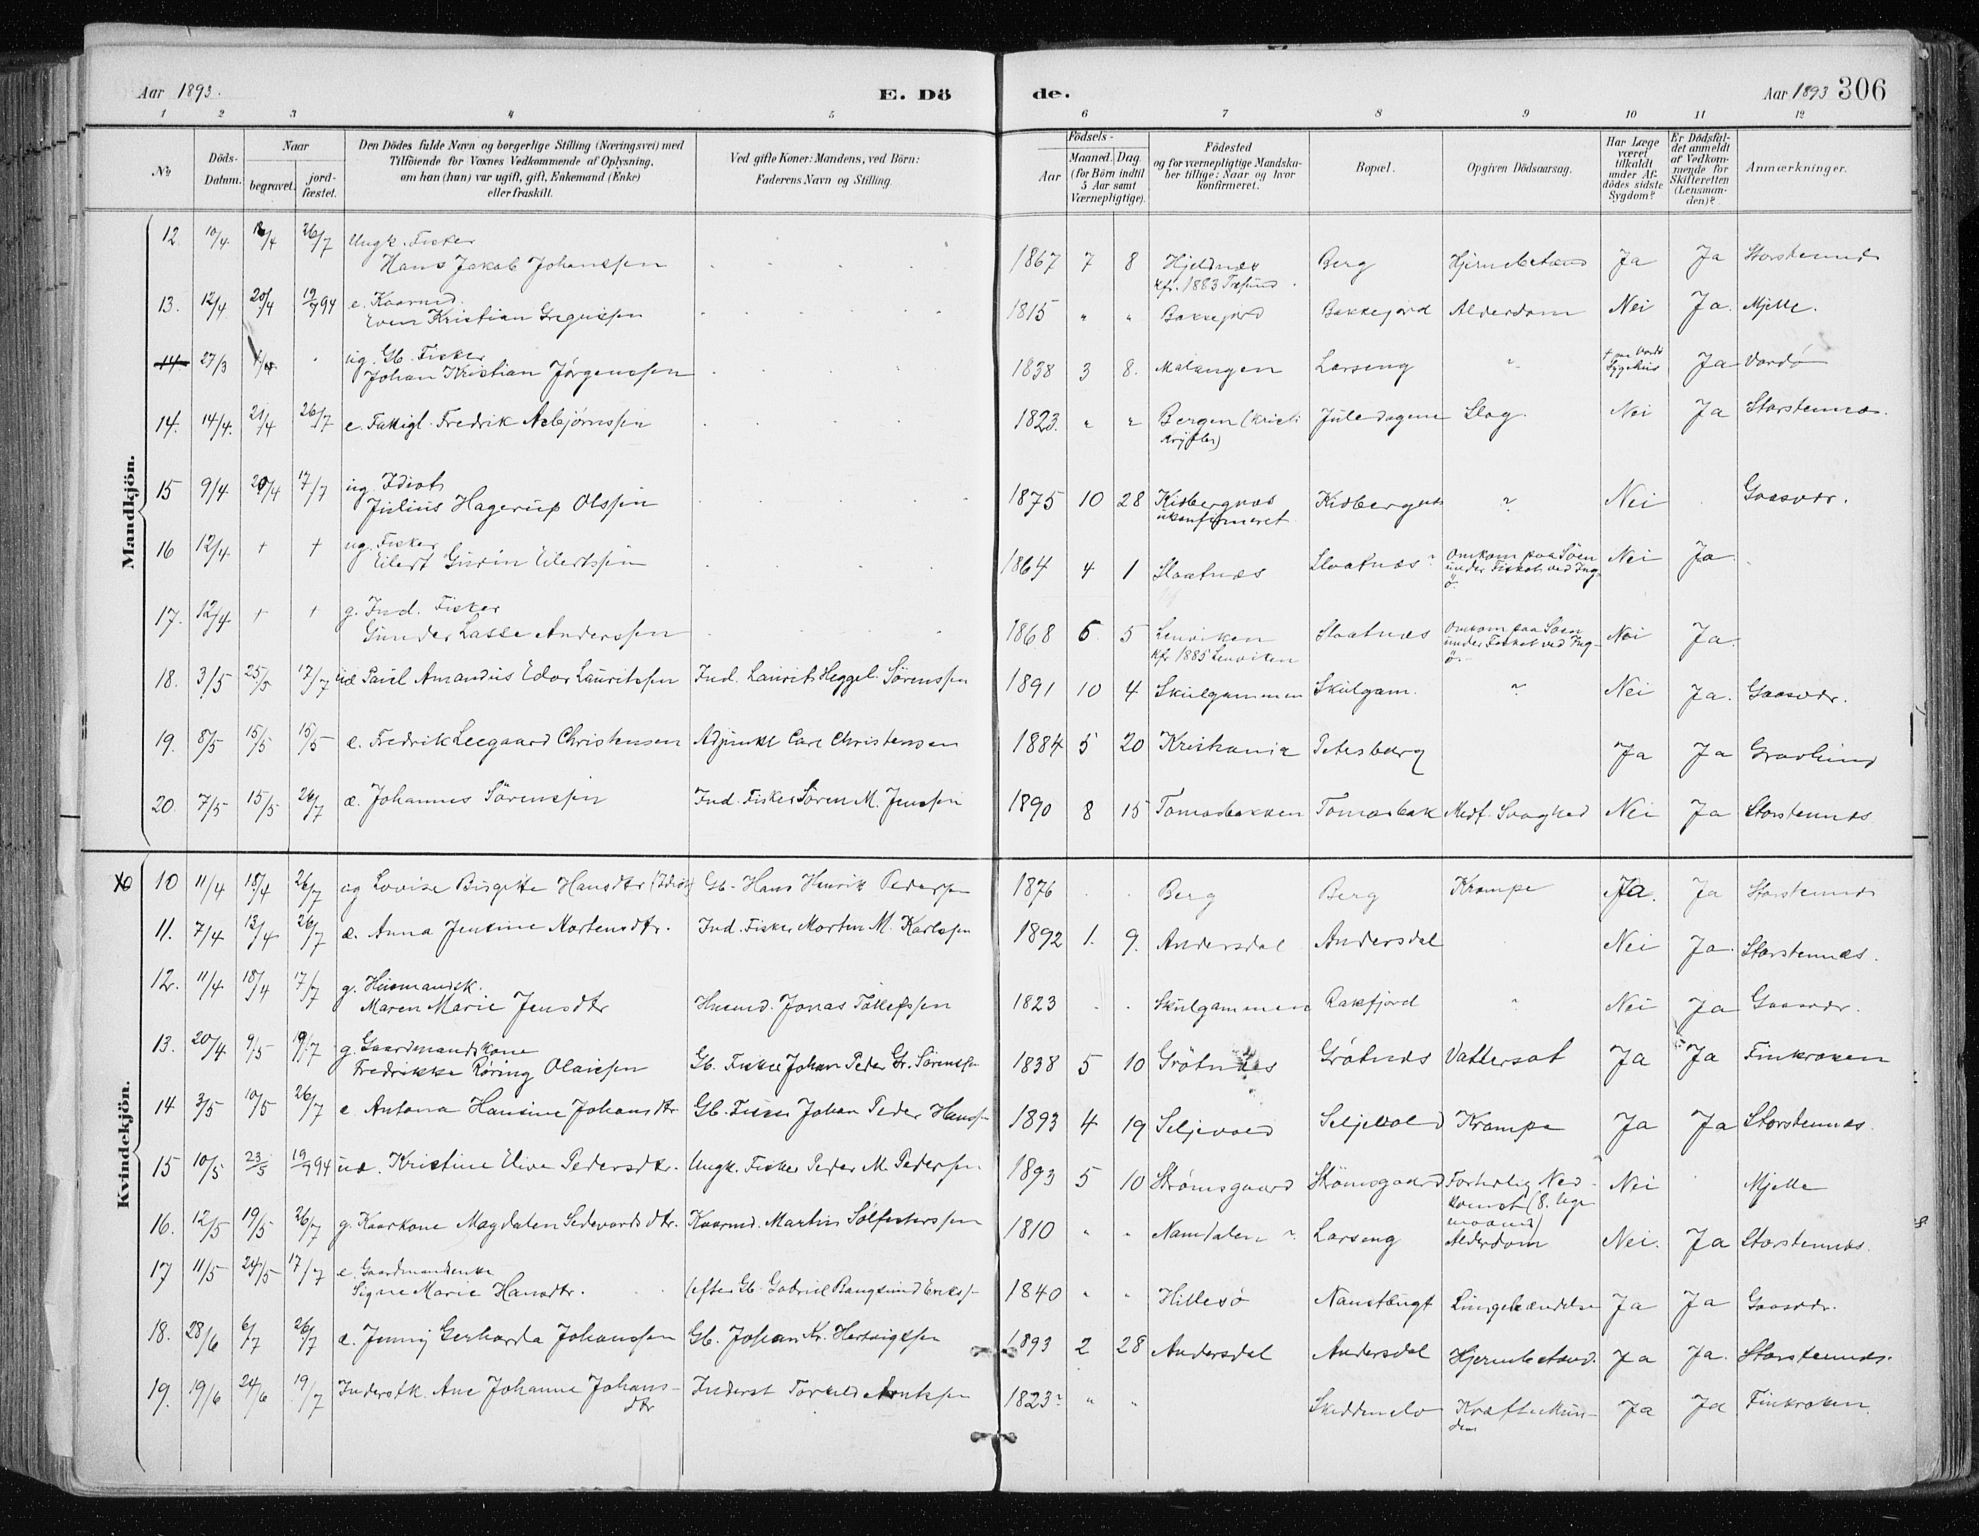 Aar 1893. E. Dö de. Aar 1893 306
1 2 3 4 5 6 7 8 9 10 11 12
№ Döds-Datum. Naar begravet. jord-fæstet. Den Dödes fulde Navn og borgerlige Stilling (Næringsvei) med Tilföiende for Voxnes Vedkommende af Oplysning, om han (hun) var ugift, gift, Enkemand (Enke) eller fraskilt. Ved gifte Koner: Mandens, ved Börn: Faderens Navn og Stilling. Födsels- Aar Maaned. Dag (for Börn indtil 5 Aar samt Værnepligtige). Födested og for værnepligtige Mandskaber tillige: Naar og hvor konfirmeret. Bopæl. Opgiven Dödsaarsag. Har Læge været tilkaldt under Afdödes sidste Sygdom? Er Dödsfaldet anmeldt af Vedkommende for Skifteretten (Lensmanden)? Anmærkninger.
Mandkjön.
12. 10/4 26/7 Ungk. Fisker
Hans Jakob Johanssen 1867 7 8 Hjeldnæs Berg Ja Ja Storstennæs
kfr. 1883
13. 12/4 20/4 19/7 94 e. Kaarmd.
Even Kristian Gregussen 1815 " " Bakkejord Bakkejord Alderdom Nei Ja. Mjelle.
14 27/3 ug. Gb. Fisker
Johan Kristian Jørgenssen 1838 3 8. Malangen Larseng " Ja Vardö
14. 14/4. 21/4 26/7 e. Fattigl. Fredrik Asbjørnssen 1823. " " Bergen Juledagene Slag. Nei Ja Storstennæs.
15 9/4 20/4 17/7 ug. Idiot
Julius Hagerup Olssen 1875 10 28 Kidbergnæs Kidbergnæs " Nei Gaasvær.
ukonfirmeret
16 12/4 + + ug. Fisker
Eilert Eilertssen 1864 4 1 Slaatnæs Slaatnæs Omkom paa Söen under Fisket ved Ingö Nei Ja
17. 12/4 + + g. Ind. Fisker
Gunder Lasse Anderssen 1868 5 Lenviken Slaatnæs Omkom paa Söen under Fisket ved Ingö Nei Ja.
kfr 1885 Lenviken
18. 3/5 25/5 17/7 uæ Paul Amandus Edor Lauritssen Ind. Laurits Heggel. Sörenssen 1891 10 4 Skulgammen Skulgam. " Nei Ja. Gaasvær.
19. 8/5 15/5 15/5 æ. Fredrik Leegaard Christensen Adjunkt Carl Christensen 1884 5 20 Kristiania Petersborg Ja Ja Gravlund
20. 7/5 15/5 26/7 æ. Johannes Sörenssen Ind. Fisker Sören M. Jenssen 1890 8 15 Tomasbakken Tomasbak Medf. Svaghed Nei Ja Storstennæs
Kvindekjön.
10 11/4 18/4 26/7 ug Lovise Birgitte Hansdtr (Idiot) Gb. Hans Henrik Pederssen 1876 Berg Berg Krampe Ja. Ja Storstennæs
11. 7/4 13/4 26/7 æ. Anna Jensine Mortensdtr. Ind. Fisker Morten M. Karlssen 1892 1. 9. Andersdal Andersdal Nei Ja Storstennæs.
12. 11/4 18/4 17/7 g. Husmandsk.
Maren Marie Jensdtr Husmd. Jonas Tollefssen 1823 Skulgammen Rakfjord " Nei Ja Gaasvær.
13. 20/4 9/5 19/7 g. Gaardmandskone
Fredrikke Röring Olaissen Gb. Fisker Johan Peder Gr. Sörenssen 1838 5 10 Grötnæs Grötnæs Vattersot Ja Ja Finkroken
14 3/5 10/5 26/7 e Antona Hansine Johansdtr Gb. Fisker Johan Peder Hanssen 1893 4 19 Seljevold Seljevold Krampe Ja Ja Storstennæs.
15 10/5 23/5 19/7 94 uæ. Kristine Elive Pedersdtr. Ungk. Fisker Peder M. Pederssen. 1893 5 10 Strömsgaard Strömsgaard Fortidlig Nedkomst (8. Uge Nei Mjelle
16. 12/5 19/5 26/7 g. Kaarkone Magdalen Sedevardsdtr. Kaarmd. Martin Solfesterssen 1810 " " Namdalen Larseng Alderdom Nei. Ja Storstennæs.
17 11/5 24/5 17/7 e. Gaardmandsenke
Signe Marie Hansdtr. (efter Gb. Gabriel Bangsund Erikss. 1840 " " Hillesö Lungebetændelse Ja Ja Gaasvær.
18. 28/6 6/7 26/7 æ. Jenny Gerharda Johanssen Gb. Johan Kr. Hartvigssen 1893 2 28 Andersdal Andersdal Hjernebetænd. Ja Ja. Storstennæs.
19. 19/6 24/6 19/7 Inderstk. Ane Johanne Johans- Inderst 1823 " Skiddenelv Ja Ja Finkroken.
dtr